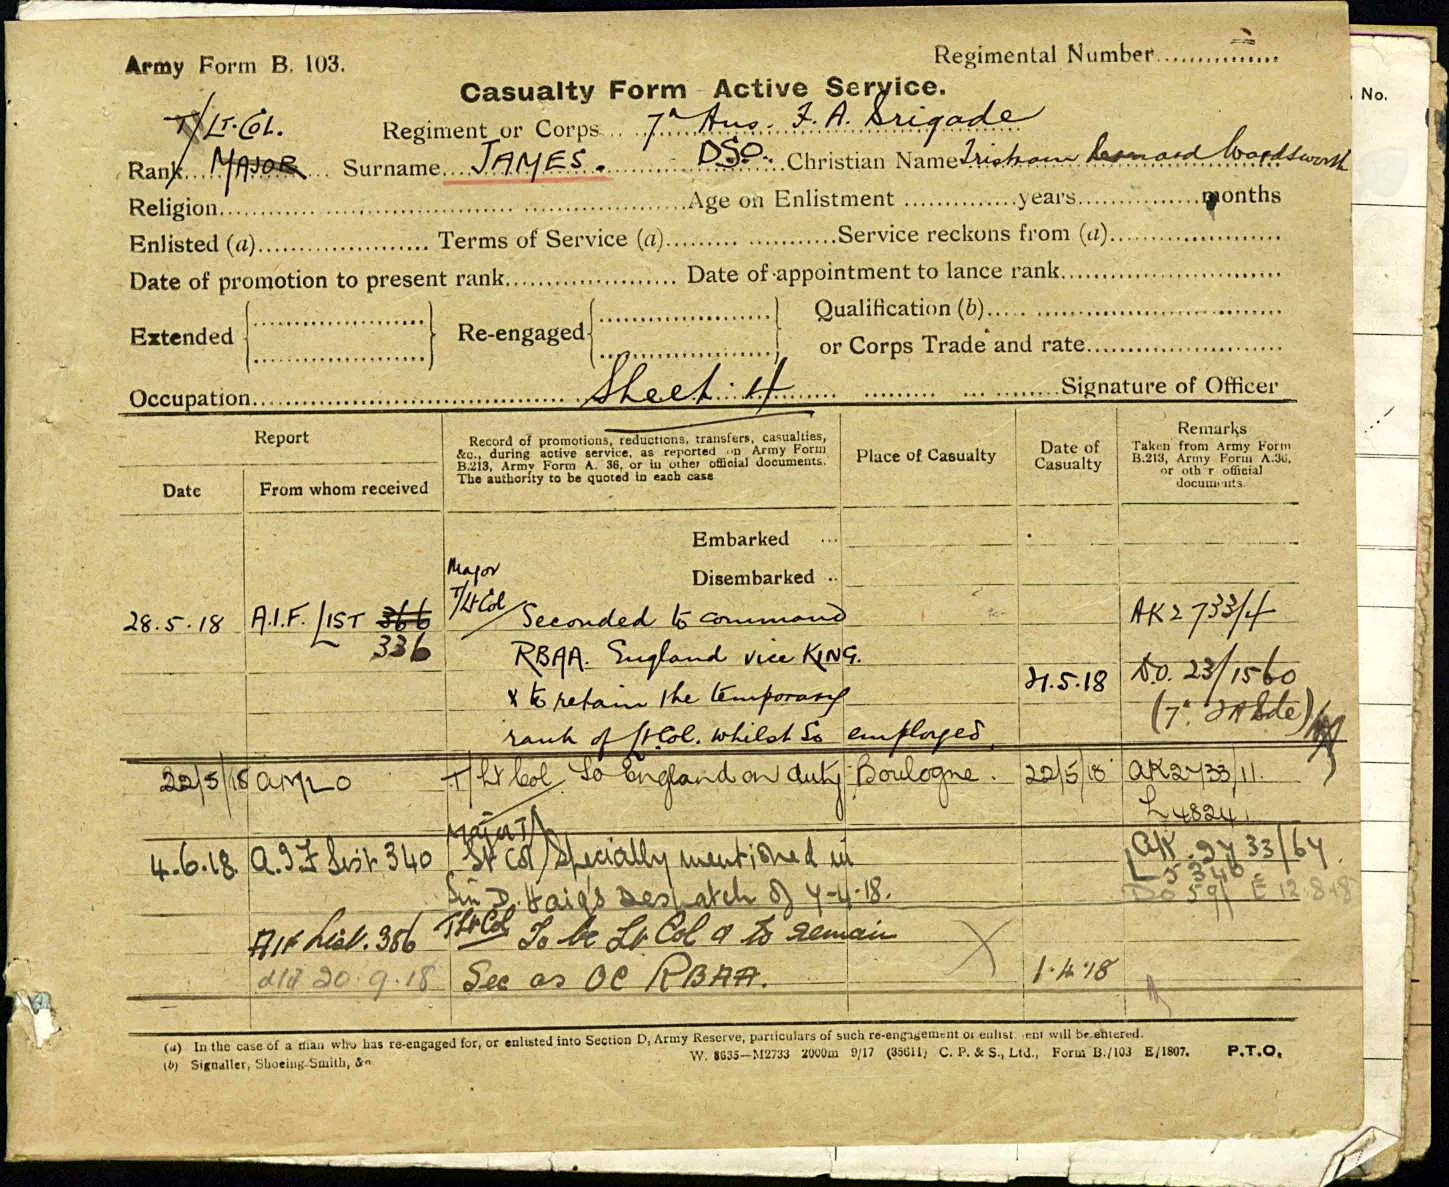 Army Form B. 103.
Regimental Number
No.
Casualty Form Active Service.
T/Lt. Col.
Regiment or Corps 7th Aus. F. A. Brigade
Rank MAJOR Surname JAMES. DSO. Christian Name Tristram Bernard Wordsworth
Religion Age on Enlistment years months
Enlisted (a) Terms of Service (a) Service reckons from (a)
Date of promotion to present rank Date of appointment to lance rank
Extended Re-engaged Qualification (b)
or Corps Trade and rate
Occupation Sheet 4 Signature of Officer
Report
Date
From whom received
Record of promotions, reductions, transfers, casualties,
&c., during active service, as reported on Army Form
B.213, Army Form A. 36, or in other official documents.
The authority to be quoted in each case
Place of Casualty
Date of
Casualty
Remarks
Taken from Army Form
B.213, Army Form A.36,
or other official
documents.
Embarked
Disembarked
Major
T/Lt Col
28.5.18 A.I.F. LIST 366 Seconded to command AK2733/4
336
RBAA. England vice KING.
21.5.18 D.O. 23/1560
& to retain the temporary
(7th FA Bde)
rank of Lt. Col. whilst so employed.
22/5/18 AMLO T/Lt Col To England on duty Boulogne. 22/5/18 AK2733/11.
L 4824.
Major T/
4.6.18. A.I.F List 340 Lt Col Specially mentioned in AK 2733/64.
L 5340
Sir D. Haig's Despatch of 7-4-18. DO 59/ E 12.8.18
AIF List. 386 T/Lt Col To be Lt Col & to remain
dtd 20.9.18 Sec as OC RBAA. 1.4.18
(a) In the case of a man who has re-engaged for, or enlisted into Section D, Army Reserve, particulars of such re-engagement or enlistment will be entered.
(b) Signaller, Shoeing-Smith, &c
W. 8635—M2733 2000m 9/17 (35611) C. P. & S., Ltd., Form B./103 E/1807. P.T.O.